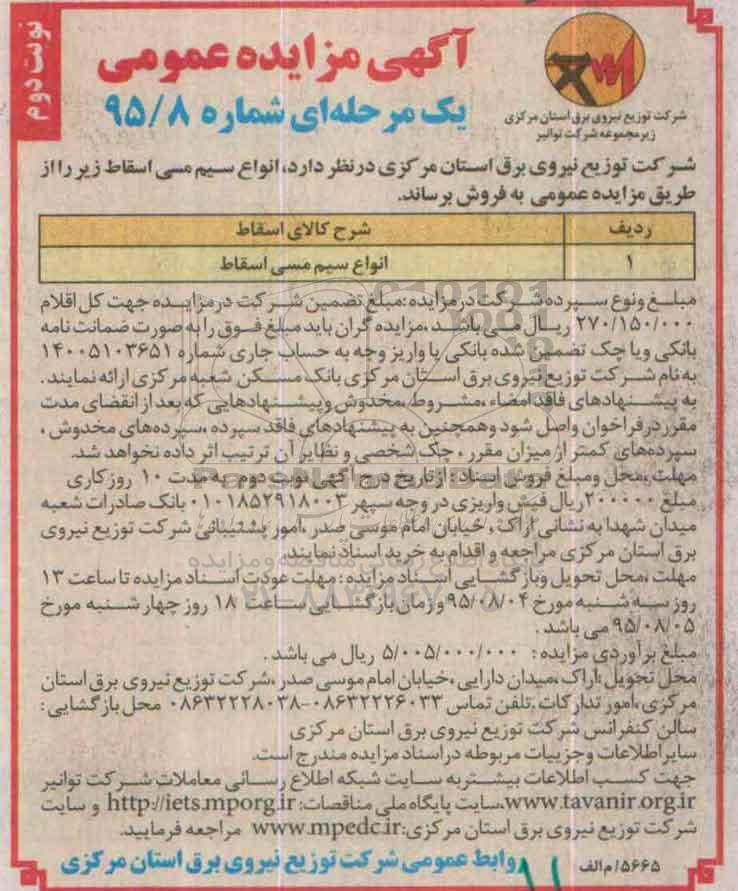 نوبت دوم
آگهی مزایده عمومی
یک مرحله‌ای شماره ۹۵/۸
شرکت توزیع نیروی برق استان مرکزی
زیرمجموعه شرکت توانیر
شرکت توزیع نیروی برق استان مرکزی درنظر دارد، انواع سیم مسی اسقاط زیر را از
طریق مزایده عمومی به فروش برساند.
ردیف شرح کالای اسقاط
۱ انواع سیم مسی اسقاط
مبلغ ونوع سپرده شرکت درمزایده :مبلغ تضمین شرکت درمزایده جهت کل اقلام
۲۷۰/۱۵۰/۰۰۰ ریال می باشد ،مزایده گران باید مبلغ فوق را به صورت ضمانت نامه
بانکی ویا چک تضمین شده بانکی یا واریز وجه به حساب جاری شماره ۱۴۰۰۵۱۰۳۶۵۱
به نام شرکت توزیع نیروی برق استان مرکزی بانک مسکن شعبه مرکزی ارائه نمایند .
به پیشنهادهای فاقد امضاء ،مشروط ،مخدوش وپیشنهادهایی که بعد از انقضای مدت
مقرر در فراخوان واصل شود وهمچنین به پیشنهادهای فاقد سپرده ،سپرده‌های مخدوش ،
سپرده‌های کمتر از میزان مقرر ، چک شخصی و نظایر آن ترتیب اثر داده نخواهد شد.
مهلت ،محل ومبلغ فروش اسناد: از تاریخ درج آگهی نوبت دوم به مدت ۱۰ روز کاری
مبلغ ۲۰۰۰۰۰ ریال فیش واریزی در وجه سپهر ۰۱۰۱۸۵۲۹۱۸۰۰۳ بانک صادرات شعبه
میدان شهدا به نشانی اراک ، خیابان امام موسی صدر ،امور پشتیبانی شرکت توزیع نیروی
برق استان مرکزی مراجعه و اقدام به خرید اسناد نمایند.
مهلت ،محل تحویل وبازگشایی اسناد مزایده : مهلت عودت اسناد مزایده تا ساعت ۱۳
روز سه شنبه مورخ ۹۵/۰۸/۰۴ و زمان بازگشایی ساعت ۱۸ روز چهار شنبه مورخ
۹۵/۰۸/۰۵ می باشد .
مبلغ برآوردی مزایده : ۵/۰۰۵/۰۰۰/۰۰۰ ریال می باشد .
محل تحویل :اراک ،میدان دارایی ،خیابان امام موسی صدر ،شرکت توزیع نیروی برق استان
مرکزی ،امور تدارکات ،تلفن تماس ۰۸۶۳۲۲۲۶۰۳۳-۰۸۶۳۲۲۲۸۰۳۸ محل بازگشایی :
سالن کنفرانس شرکت توزیع نیروی برق استان مرکزی
سایر اطلاعات و جزییات مربوطه در اسناد مزایده مندرج است.
جهت کسب اطلاعات بیشتر به سایت شبکه اطلاع رسانی معاملات شرکت توانیر
www.tavanir.org.ir،سایت پایگاه ملی مناقصات: http://iets.mporg.ir و سایت
شرکت توزیع نیروی برق استان مرکزی:www.mpedc.ir مراجعه فرمایید.
۵۶۶۵/م الف
روابط عمومی شرکت توزیع نیروی برق استان مرکزی
۱۱